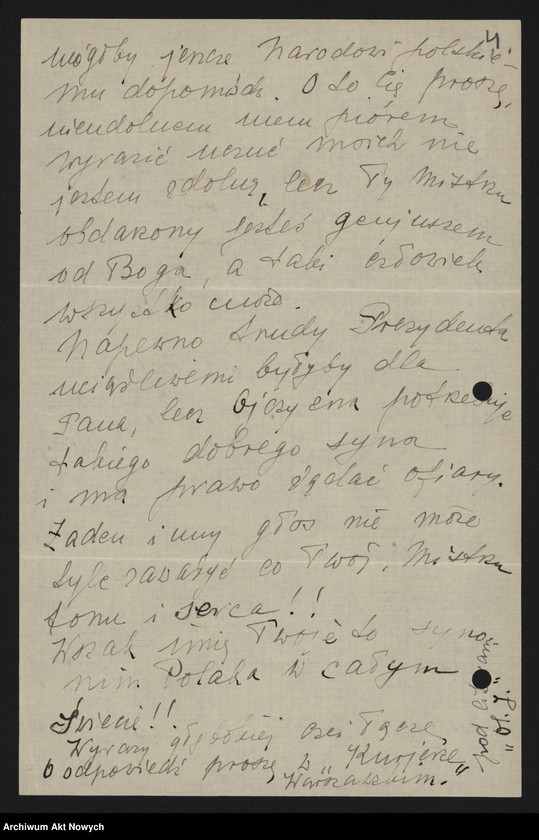 4
mógłby jeszcze Narodowi polskie-
mu dopomódz. O to Cię proszę,
nieudolnem mem piórem
wyrazić uczuć moich nie
jestem zdolną, lecz Ty Mistrzu
obdarzony jesteś genjuszem
od Boga, a taki człowiek
wszystko może.
Napewno trudy Prezydenta
uciążliwemi byłyby dla
Pana, lecz Ojczyzna potrzebuje
takiego dobrego syna
i ma prawo żądać ofiary.
Żaden inny głos nie może
tyle zaważyć co Twój, Mistrzu
tonu i serca!!
Wszak imię Twoje to syno-
nim Polaka w całym
Świecie!!
Wyrazy głębokiej czci łączę
O odpowiedź proszę w „Kurjerze
Warszawskim."
pod